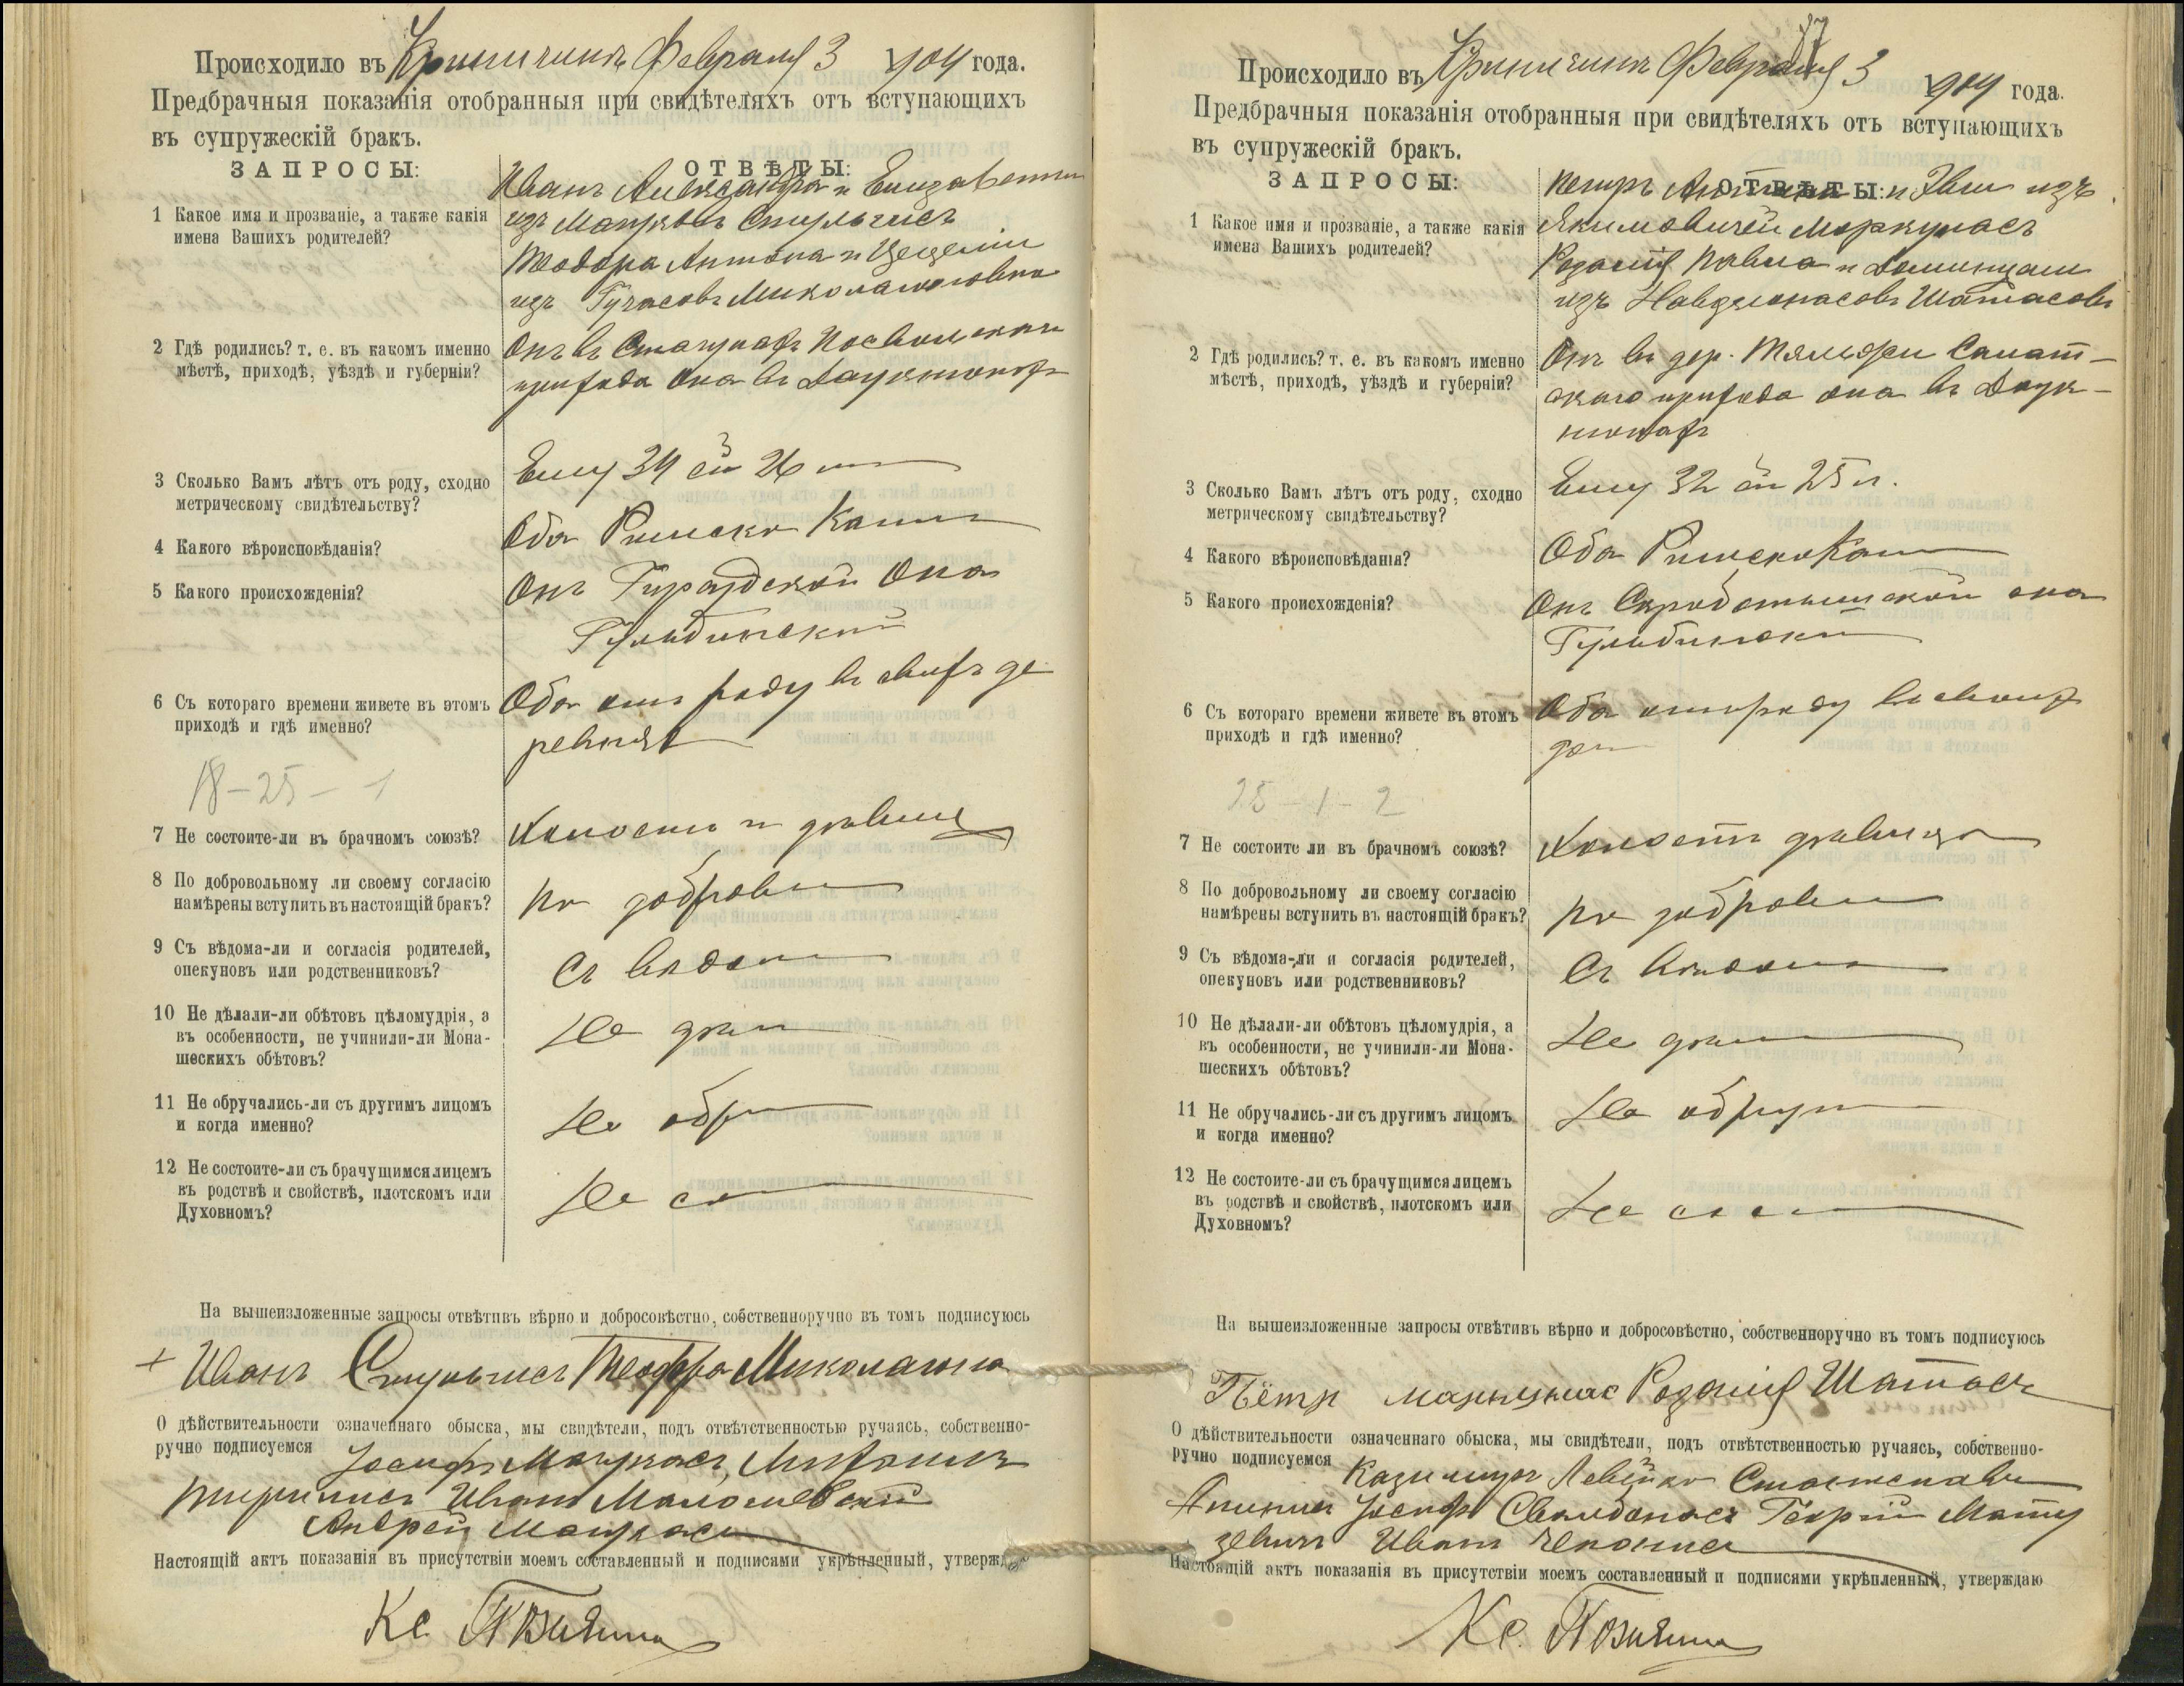 Происходило въ Криничинѣ Февраля 3 1904 года.
Предбрачныя показанія отобранныя при свидѣтеляхъ отъ вступающихъ
въ супружескій бракъ.
ЗАПРОСЫ: ОТВѢТЫ:
Иванъ Александра и Елизаветы
1 Какое имя и прозваніе, а также какія
имена Вашихъ родителей?
изъ
Теодора Антона и Цециліи
изъ
2 Гдѣ родились? т. е. въ какомъ именно
мѣстѣ, приходѣ, уѣздѣ и губерніи?
Онъ въ
прихода она въ
3 Сколько Вамъ лѣтъ отъ роду, сходно
метрическому свидѣтельству?
Ему 34 ей 26
4 Какого вѣроисповѣданія?
Оба Римско Кат
5 Какого происхожденія?
Онъ Она
6 Съ котораго времени живете въ этомъ
приходѣ и гдѣ именно?
Оба отъ роду въ своихъ де
ревняхъ
18-25-1
7 Не состоите-ли въ брачномъ союзѣ?
Холостъ и дѣвица
8 По добровольному ли своему согласію
намѣрены вступить въ настоящій бракъ?
По добров
9 Съ вѣдома-ли и согласія родителей,
опекуновъ или родственниковъ?
Съ вѣдом
10 Не дѣлали-ли обѣтовъ цѣломудрія, а
въ особенности, не учинили-ли Мона-
шескихъ обѣтовъ?
Не дѣл
11 Не обручались-ли съ другимъ лицомъ
и когда именно?
Не обр
12 Не состоите-ли съ брачущимся лицемъ
въ родствѣ и свойствѣ, плотскомъ или
Духовномъ?
Не со
На вышеизложенные запросы отвѣтивъ вѣрно и добросовѣстно, собственноручно въ томъ подписуюсь
+ Иванъ Теодора
О дѣйствительности означеннаго обыска, мы свидѣтели, подъ отвѣтственностью ручаясь, собственно-
ручно подписуемся
Іосифъ
Иванъ
Андрей
Настоящій актъ показанія въ присутствіи моемъ составленный и подписями укрѣпленный, утвержд
Кс.
Происходило въ Криничинѣ Февраля 3 1904 года.
Предбрачныя показанія отобранныя при свидѣтеляхъ отъ вступающихъ
въ супружескій бракъ.
ЗАПРОСЫ: ОТВѢТЫ:
Петръ и Эвы изъ
1 Какое имя и прозваніе, а также какія
имена Вашихъ родителей?
Якимовичей
Розалія Павла и Доминцели
изъ Шатасовъ
2 Гдѣ родились? т. е. въ какомъ именно
мѣстѣ, приходѣ, уѣздѣ и губерніи?
Онъ въ дер. Салат-
скаго прихода она въ Даук-
3 Сколько Вамъ лѣтъ отъ роду, сходно
метрическому свидѣтельству?
Ему 32 ей 25 л.
4 Какого вѣроисповѣданія?
Оба РимскоКат
5 Какого происхожденія?
Онъ она
6 Съ котораго времени живете въ этомъ
приходѣ и гдѣ именно?
Оба отъ роду въ своихъ
де
25-1-2
7 Не состоите ли въ брачномъ союзѣ?
Холостъ дѣвица
8 По добровольному ли своему согласію
намѣрены вступить въ настоящій бракъ?
По добров
9 Съ вѣдома-ли и согласія родителей,
опекуновъ или родственниковъ?
Съ вѣдома
10 Не дѣлали-ли обѣтовъ цѣломудрія, а
въ особенности, не учинили-ли Мона-
шескихъ обѣтовъ?
Не дѣл
11 Не обручались-ли съ другимъ лицомъ
и когда именно?
Не обруч
12 Не состоите-ли съ брачущимся лицемъ
въ родствѣ и свойствѣ, плотскомъ или
Духовномъ?
Не сос
На вышеизложенные запросы отвѣтивъ вѣрно и добросовѣстно, собственноручно въ томъ подписуюсь
Пётръ Розалія Шатасъ
О дѣйствительности означеннаго обыска, мы свидѣтели, подъ отвѣтственностью ручаясь, собственно-
ручно подписуемся
Казимиръ
Іосифъ Мату
Иванъ
Настоящій актъ показанія въ присутствіи моемъ составленный и подписями укрѣпленный, утверждаю
Кс.